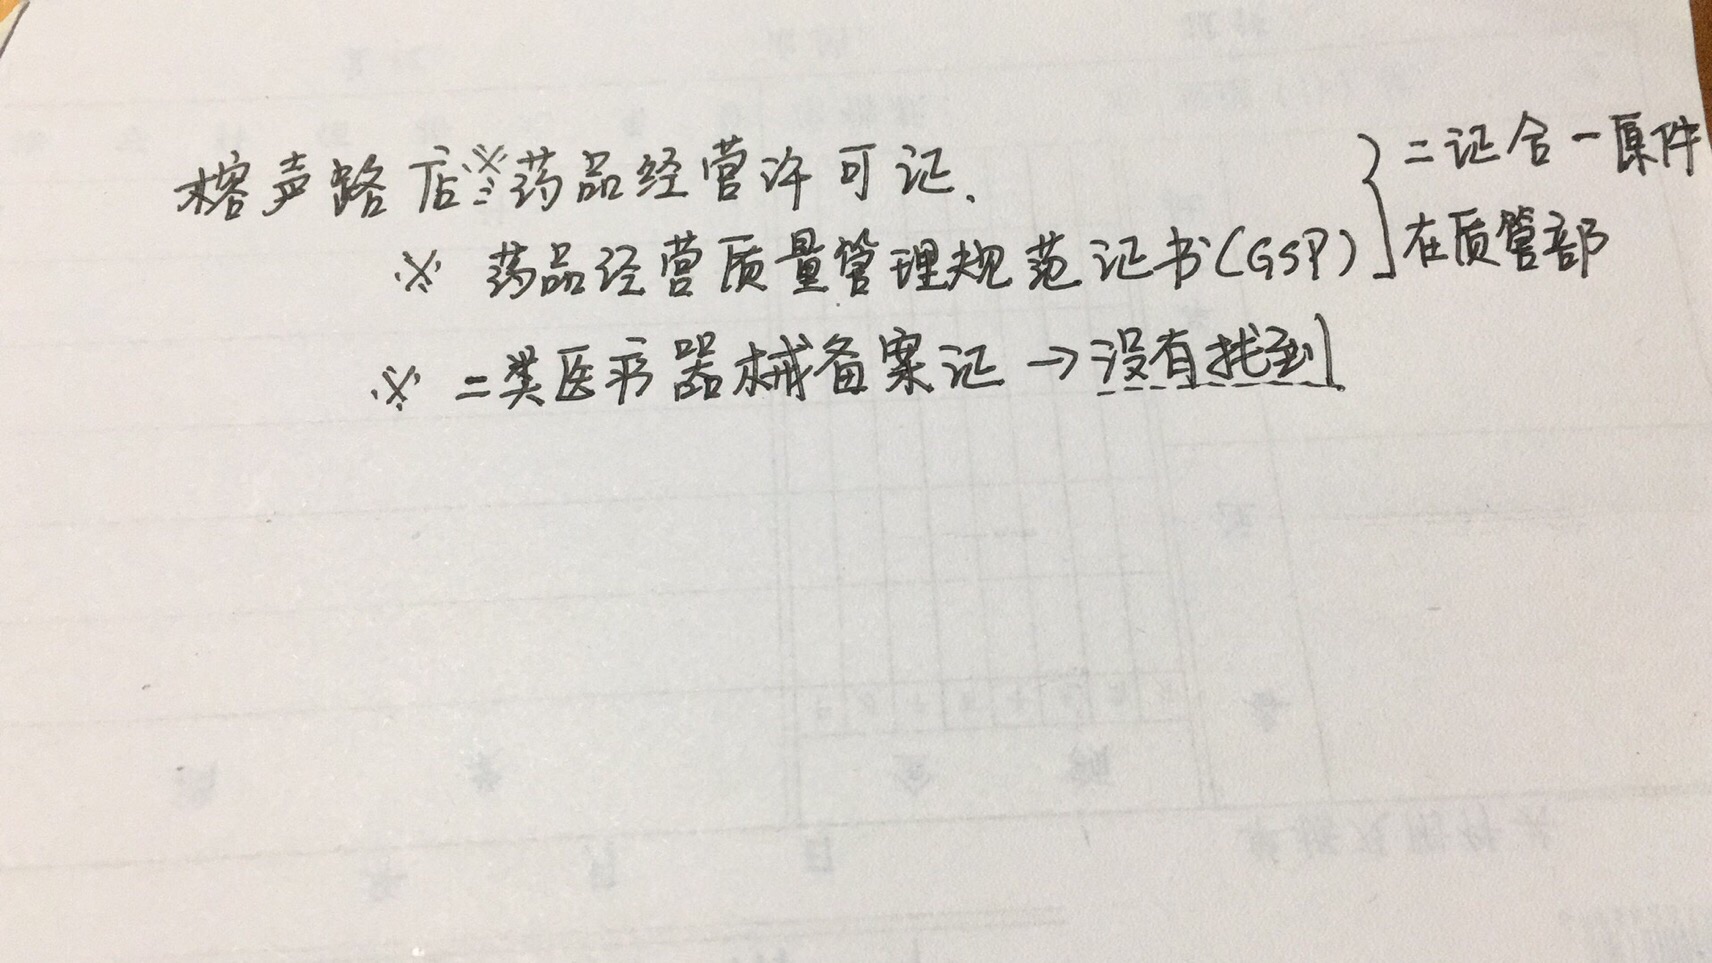 榕声路店※药品经营许可证、
※ 药品经营质量管理规范证书(GSP)
二证合一原件
在质管部
※ 二类医疗器械备案证→没有找到